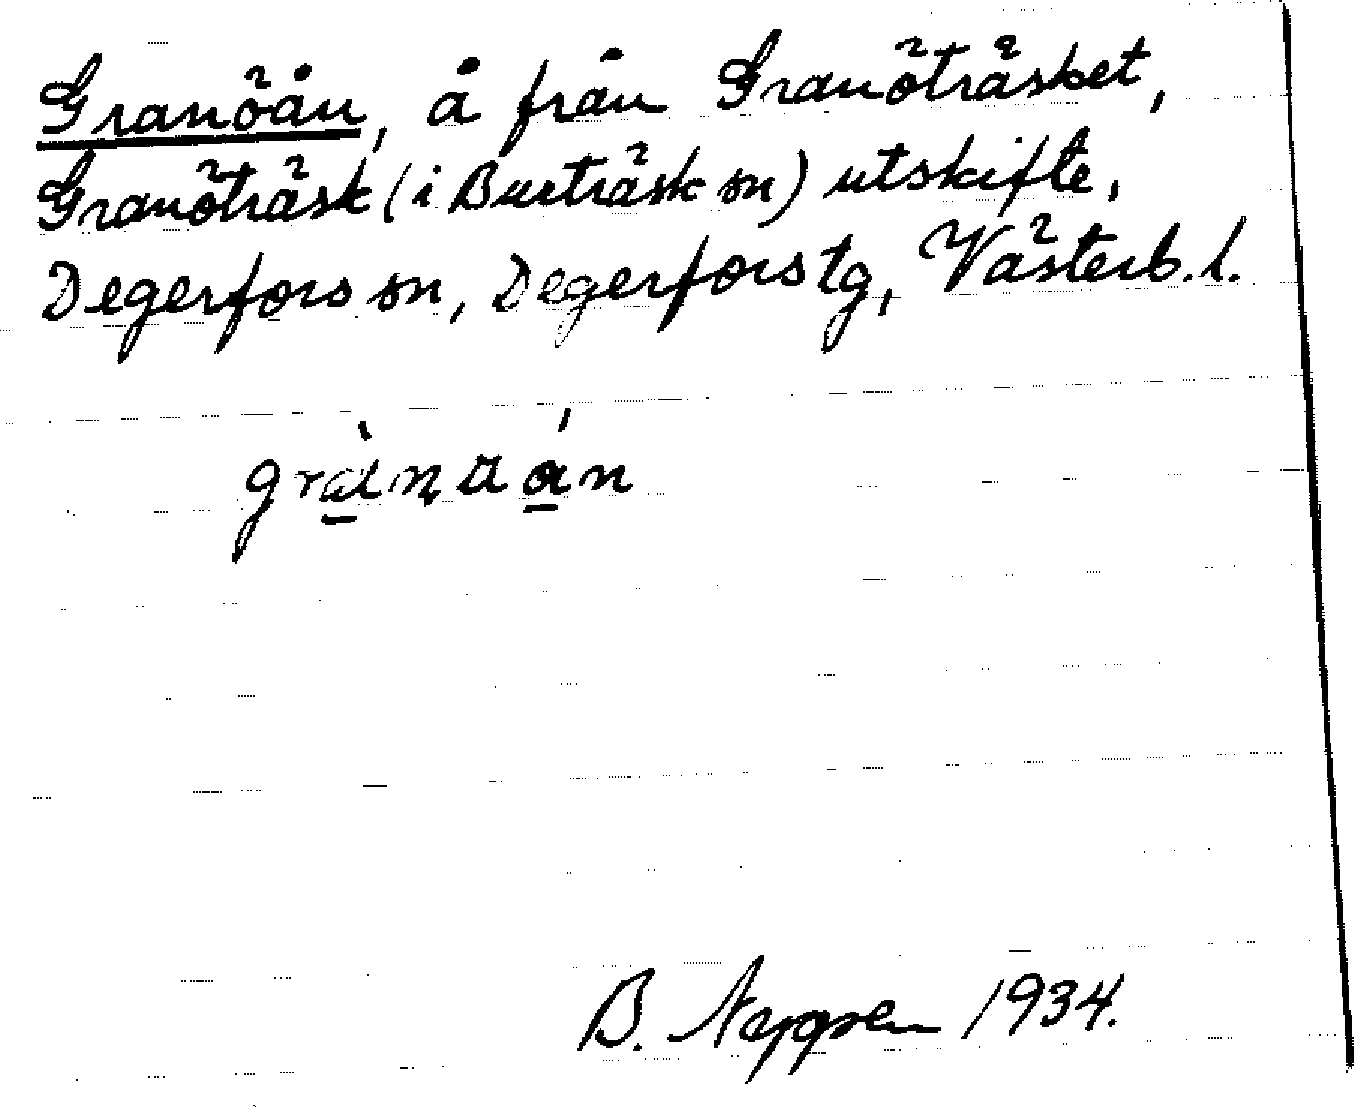 Granöån, å från Granöträsket,
Granöträsk (i Burträsk sn) utskifte,
Degerfors sn, Degerfors tg, Västerb. l.
B. 1934.